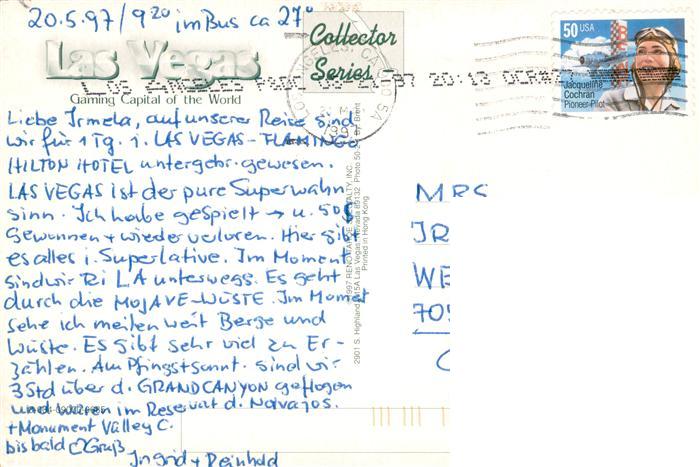 20.5.97/9 20 im Bus ca 27°
Las Vegas
Gaming Capital of the World
Collector
Series
50 USA
Jacqueline
Cochran
Pioneer Pilot
Liebe Irmela, auf unserer Reise sind
wir für 1 Tg. i. LAS VEGAS - FLAMINGO
HILTON HOTEL untergebr. gewesen.
LAS VEGAS ist der pure Superwahn
sinn. Ich habe gespielt → u. 50$
gewonnen + wieder verloren. Hier gibt
es alles i. Superlative. Im Moment
sind wir Ri LA unterwegs. Es geht
durch die MOJAVE-WÜSTE. Im Moment
sehe ich meilenweit Berge und
Wüste. Es gibt sehr viel zu Er-
zählen. Am Pfingstsonnt. sind wir
3 Std über d. GRANDCANYON geflogen
und waren im Reservat d. Navajos.
+ Monument Valley C.
bis bald Gruß
Ingrid + Reinhold
MRS
IR
WE
705
Printed in Hong Kong